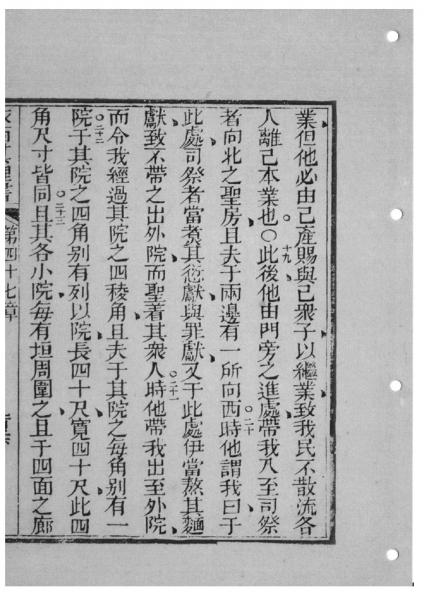 業但他必由己產賜與己衆子以繼業致我民不散流各
人離己本業也○十九此後他由門旁之進處帶我乃至司祭
者向北之聖房且夫于兩邊有一所向西時二十他謂我曰于
此處司祭者當煮其愆獻與罪獻又于此處伊當熬其麵
獻致不帶之出外院而聖着其衆人二十一時他帶我出至外院
而令我經過其院之四稜角且夫于其院之每角別有一
院二十二于其院之四角別有列以院長四十尺寬四十尺此四
角尺寸皆同二十三且其各小院每有垣周圍之且于四面之廊
第四十七章